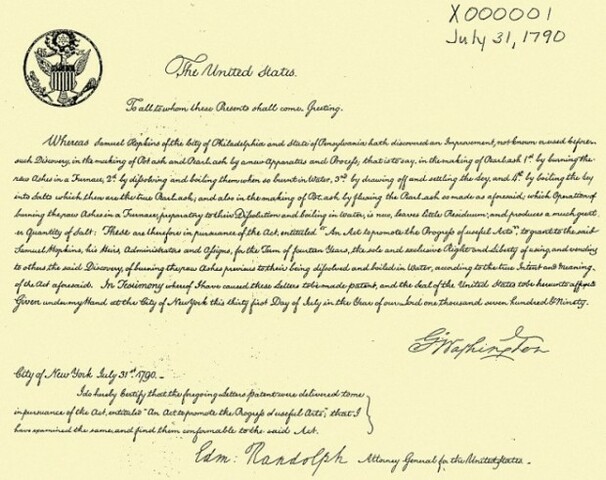 X000001
July 31, 1790
The United States.
To all to whom these Presents shall come, Greeting.
Whereas Samuel Hopkins of the City of Philadelphia and State of Pensylvania hath discovered an Improvement, not known or used before
such Discovery, in the making of Pot ash and Pearl ash by a new Apparatus and Process; that is to say, in the making of Pearl ash 1st by burning the
raw Ashes in a Furnace, 2d by dissolving and boiling them when so burnt in Water, 3rd by drawing off and settling the Ley, and 4th by boiling the Ley
into Salts which then are the true Pearl ash; and also in the making of Pot ash by fluxing the Pearl ash so made as aforesaid; which Operation of
burning the raw Ashes in a Furnace, preparatory to their Dissolution and boiling in Water, is new, leaves little Residuum; and produces a much great
er Quantity of Salt: These are therefore in pursuance of the Act, entituled "An Act to promote the Progress of useful Arts", to grant to the said
Samuel Hopkins, his Heirs, Administrators and Assigns, for the Term of fourteen Years, the sole and exclusive Right and Liberty of using, and vending
to others the said Discovery, of burning the raw Ashes previous to their being dissolved and boiled in Water, according to the true Intent and Meaning
of the Act aforesaid. In Testimony whereof I have caused these Letters to be made patent, and the Seal of the United States to be hereunto affixed
Given under my Hand at the City of New York this thirty first Day of July in the Year of our Lord one thousand seven hundred & Ninety.
G. Washington
City of New York July 31st 1790.
I do hereby Certify that the foregoing Letters patent were delivered to me
in pursuance of the Act, entituled "An Act to promote the Progress of useful Arts"; that I
have examined the same, and find them conformable to the said Act.
Edm: Randolph Attorney General for the United States.